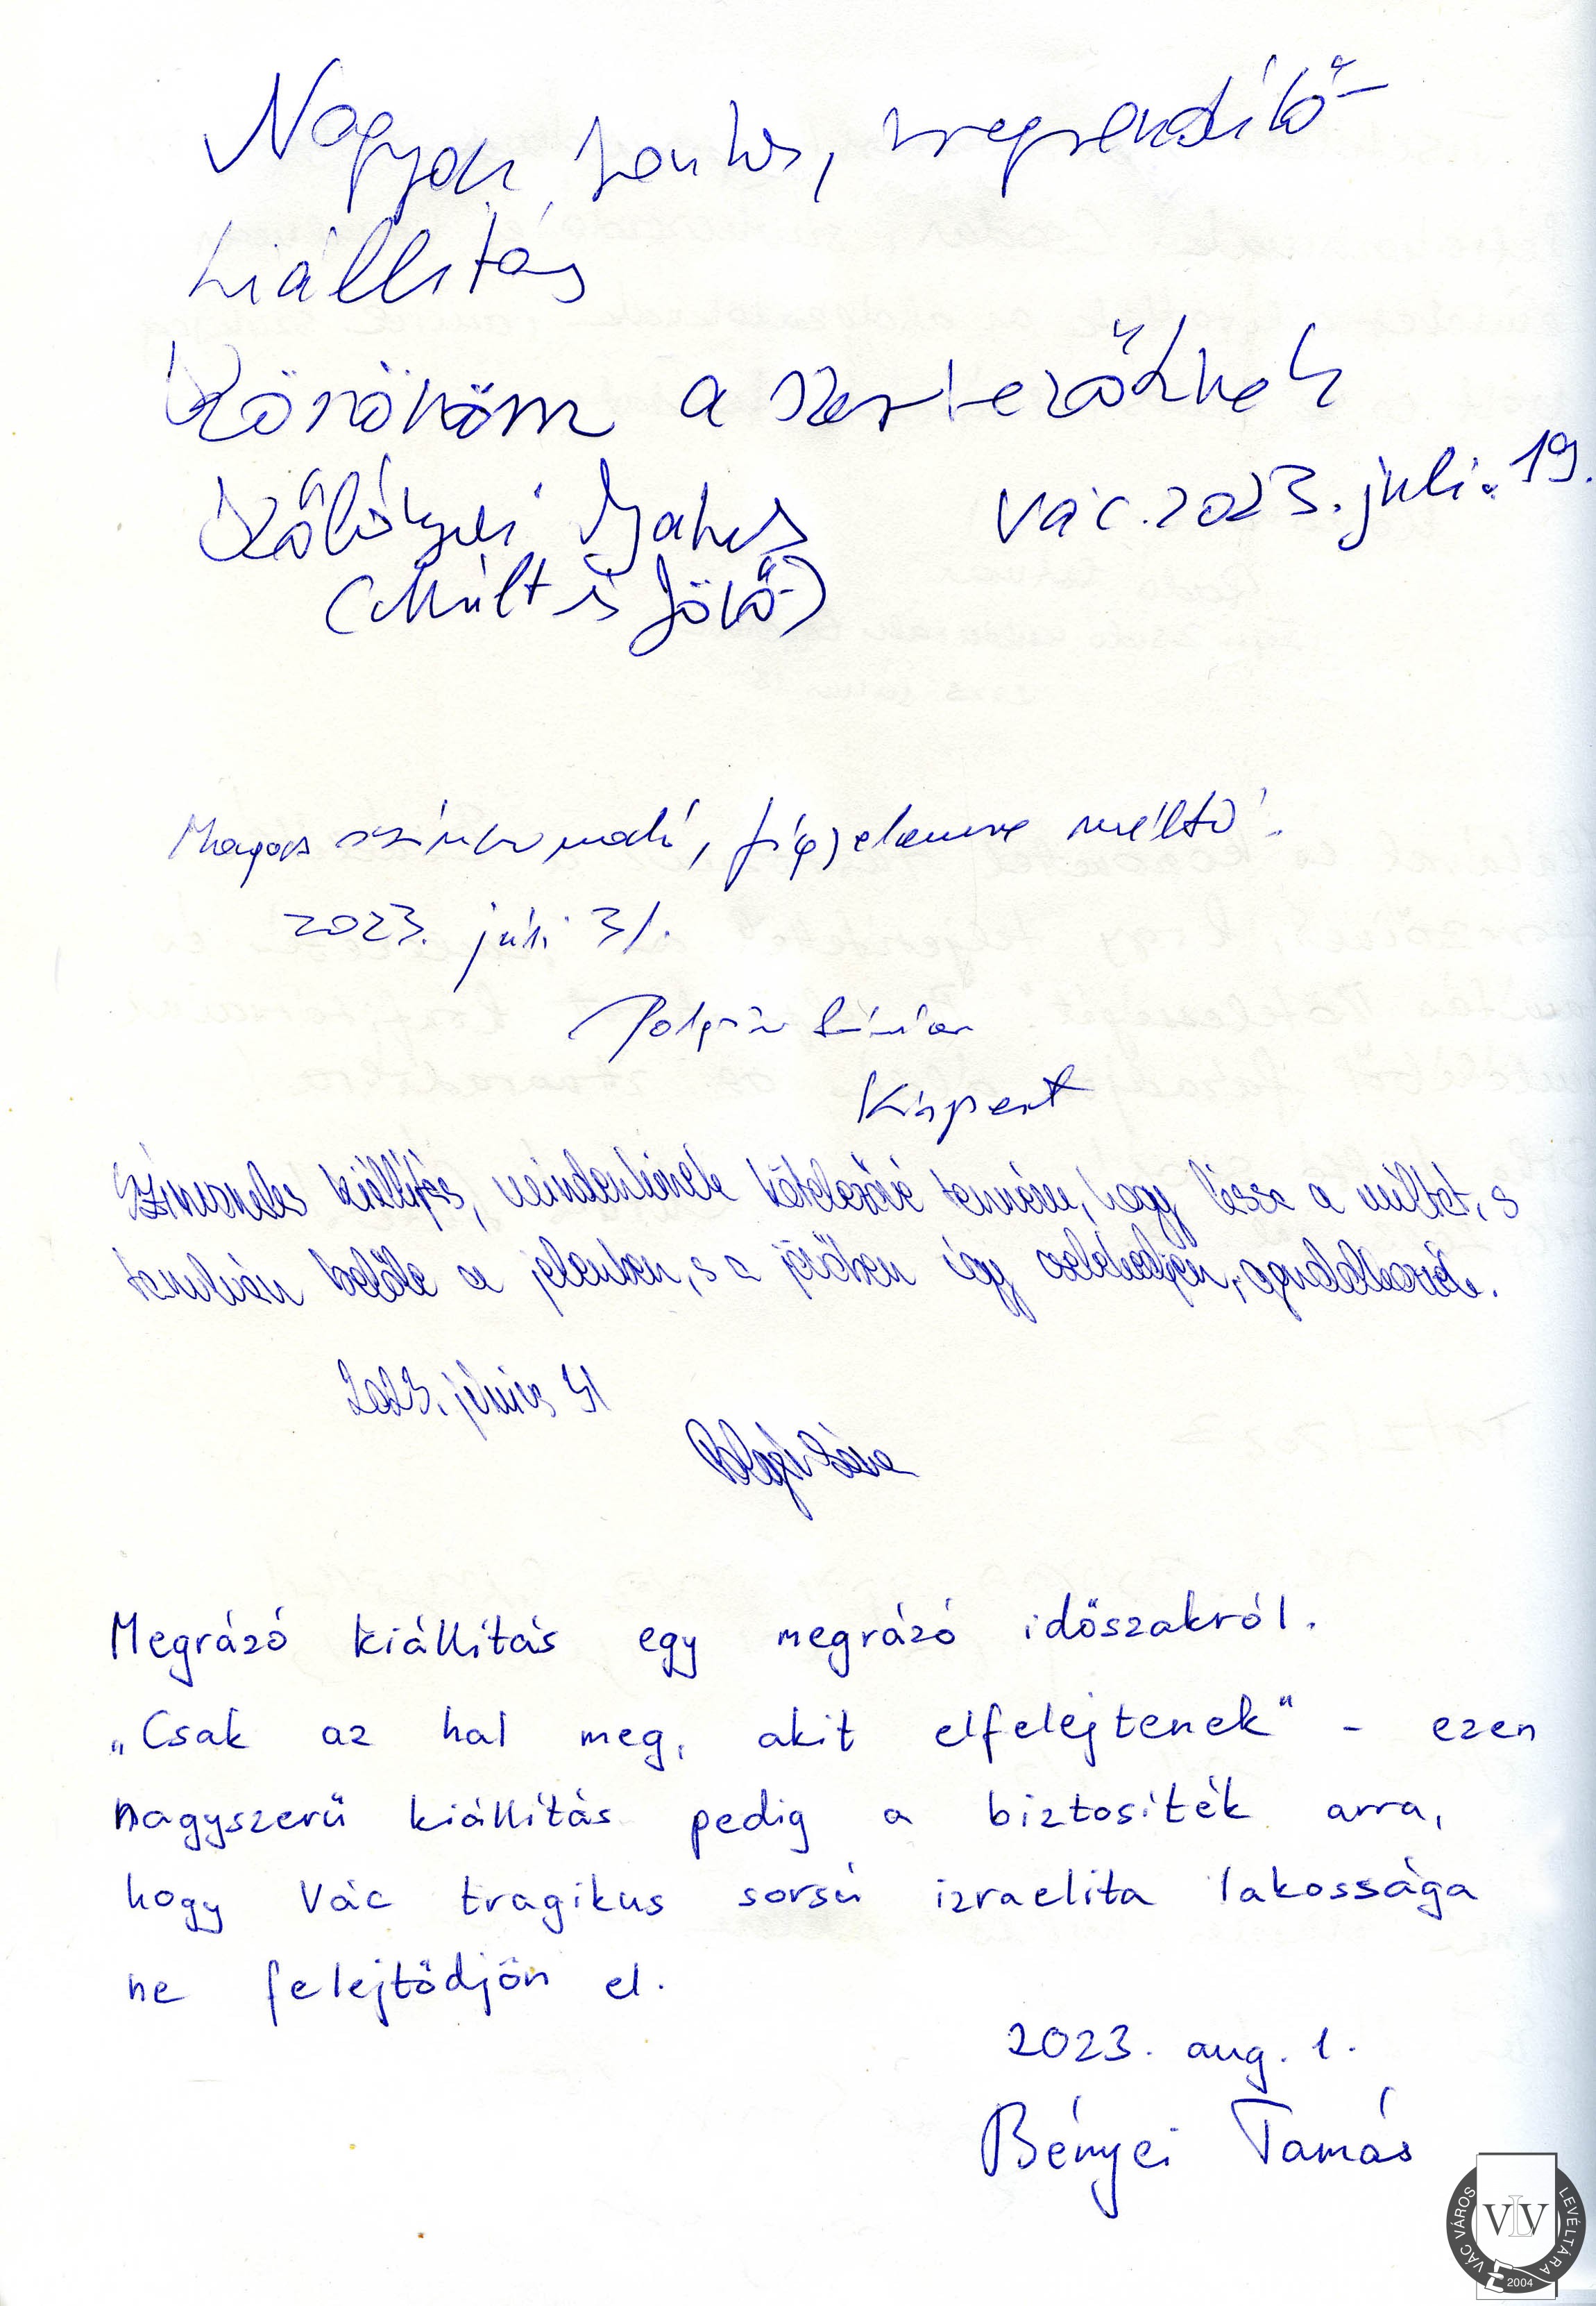 Nagyon fontos, megrendítő
kiállítás
Köszönöm a szervezőknek
Kőbányai János Vác. 2023. juli. 19.
(Múlt és Jövő)
Magas színvonalú, figyelemre méltó.
2023. júli 31.
Polgár
Kispest
Színvonalas kiállítás, mindenkinek kötelezővé tenném, hogy lássa a múltat, s
tanulván belőle a jelenben, s a jövőben így cselekedjen, gondolkozzék.
2023. július 31
Megrázó kiállítás egy megrázó időszakról.
„Csak az hal meg, akit elfelejtenek" - ezen
nagyszerű kiállítás pedig a biztosíték arra,
hogy Vác tragikus sorsú izraelita lakossága
ne felejtődjön el.
2023. aug. 1.
Bényei Tamás
VÁC VÁROS LEVÉLTÁRA
VLV
2004